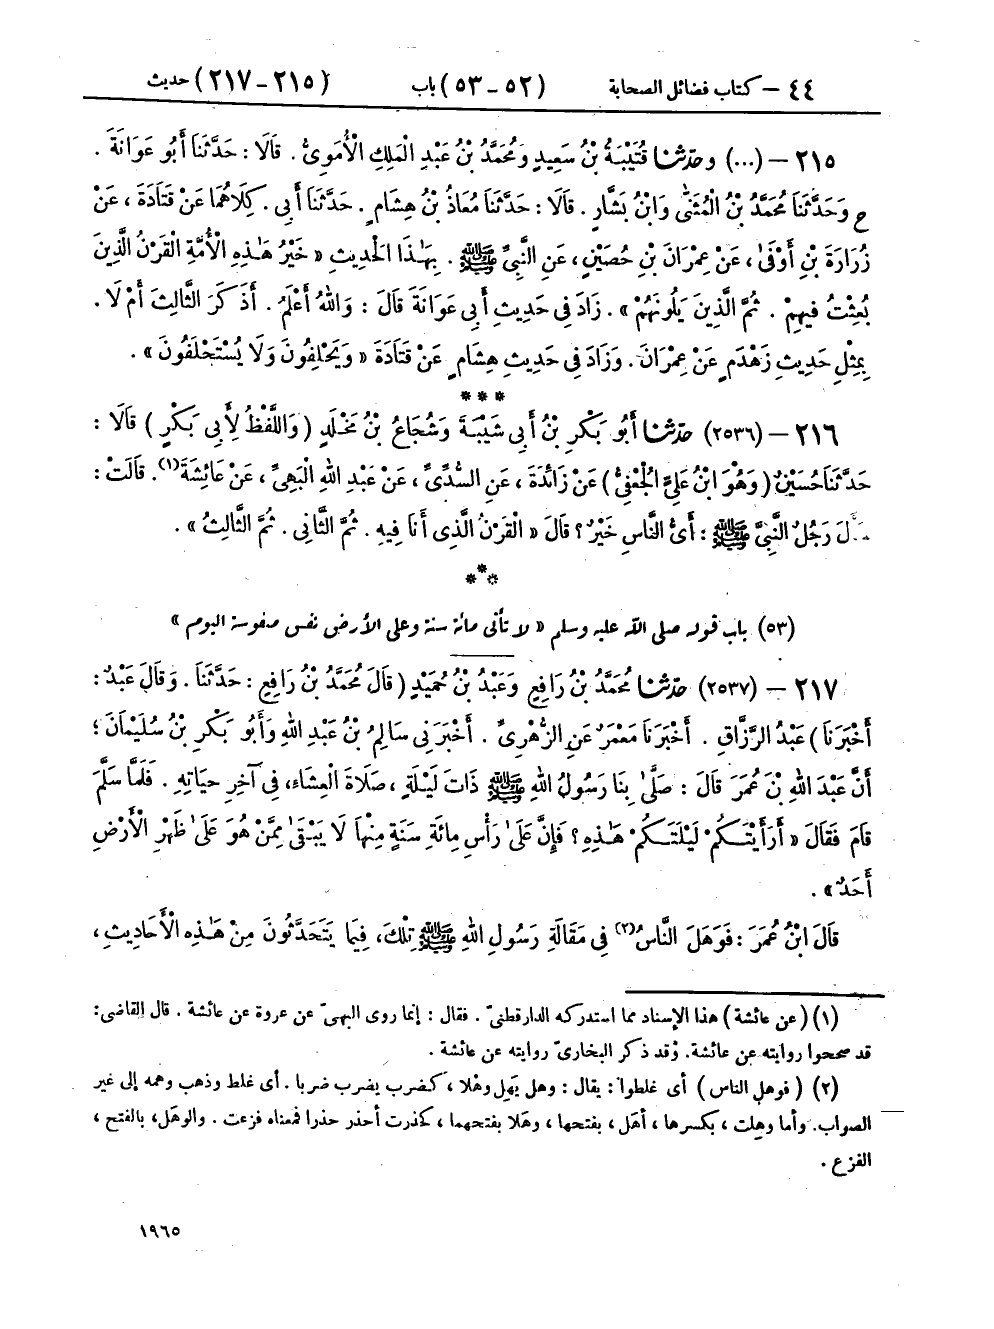 ٤٤ – كتاب فضائل الصحابة (٥٢ – ٥٣) باب (٢١٥ – ٢١٧) حديث
٢١٥ – (...) وحَدَّثَنَا قُتَيْبَةُ بْنُ سَعِيدٍ وَمُحَمَّدُ بْنُ عَبْدِ الْمَلِكِ الْأُمَوِيُّ . قَالَا : حَدَّثَنَا أَبُو عَوَانَةَ .
ح وَحَدَّثَنَا مُحَمَّدُ بْنُ الْمُثَنَّى وَابْنُ بَشَّارٍ . قَالَا : حَدَّثَنَا مُعَاذُ بْنُ هِشَامٍ . حَدَّثَنَا أَبِي . كِلَاهُمَا عَنْ قَتَادَةَ ، عَنْ
زُرَارَةَ بْنِ أَوْفَىٰ ، عَنْ عِمْرَانَ بْنِ حُصَيْنٍ ، عَنِ النَّبِيِّ ﷺ . بِهَٰذَا الْحَدِيثِ « خَيْرُ هَٰذِهِ الْأُمَّةِ الْقَرْنُ الَّذِينَ
بُعِثْتُ فِيهِمْ . ثُمَّ الَّذِينَ يَلُونَهُمْ » . زَادَ فِي حَدِيثِ أَبِي عَوَانَةَ قَالَ : وَاللهُ أَعْلَمُ . أَذَكَرَ الثَّالِثَ أَمْ لَا .
بِمِثْلِ حَدِيثِ زَهْدَمٍ عَنْ عِمْرَانَ . وَزَادَ فِي حَدِيثِ هِشَامٍ عَنْ قَتَادَةَ « وَيَحْلِفُونَ وَلَا يُسْتَحْلَفُونَ » .
***
٢١٦ – (٢٥٣٦) حَدَّثَنَا أَبُو بَكْرِ بْنُ أَبِي شَيْبَةَ وَشُجَاعُ بْنُ مَخْلَدٍ ( وَاللَّفْظُ لِأَبِي بَكْرٍ ) قَالَا :
حَدَّثَنَا حُسَيْنٌ ( وَهُوَ ابْنُ عَلِيٍّ الْجُعْفِيُّ ) عَنْ زَائِدَةَ ، عَنِ السُّدِّيِّ ، عَنْ عَبْدِ اللهِ الْبَهِيِّ ، عَنْ عَائِشَةَ(١) . قَالَتْ :
سَأَلَ رَجُلٌ النَّبِيَّ ﷺ : أَيُّ النَّاسِ خَيْرٌ ؟ قَالَ « الْقَرْنُ الَّذِي أَنَا فِيهِ . ثُمَّ الثَّانِي . ثُمَّ الثَّالِثُ » .
***
(٥٣) باب قوله صلى الله عليه وسلم « لا تأتى مائة سنة وعلى الأرض نفس منفوسة اليوم »
٢١٧ – (٢٥٣٧) حَدَّثَنَا مُحَمَّدُ بْنُ رَافِعٍ وَعَبْدُ بْنُ حُمَيْدٍ ( قَالَ مُحَمَّدُ بْنُ رَافِعٍ : حَدَّثَنَا . وَقَالَ عَبْدٌ :
أَخْبَرَنَا ) عَبْدُ الرَّزَّاقِ . أَخْبَرَنَا مَعْمَرٌ عَنِ الزُّهْرِيِّ . أَخْبَرَنِي سَالِمُ بْنُ عَبْدِ اللهِ وَأَبُو بَكْرِ بْنُ سُلَيْمَانَ ؛
أَنَّ عَبْدَ اللهِ بْنَ عُمَرَ قَالَ : صَلَّىٰ بِنَا رَسُولُ اللهِ ﷺ ذَاتَ لَيْلَةٍ ، صَلَاةَ الْعِشَاءِ، فِي آخِرِ حَيَاتِهِ . فَلَمَّا سَلَّمَ
قَامَ فَقَالَ « أَرَأَيْتَكُمْ لَيْلَتَكُمْ هَٰذِهِ ؟ فَإِنَّ عَلَىٰ رَأْسِ مِائَةِ سَنَةٍ مِنْهَا لَا يَبْقَىٰ مِمَّنْ هُوَ عَلَىٰ ظَهْرِ الْأَرْضِ
أَحَدٌ » .
قَالَ ابْنُ عُمَرَ : فَوَهَلَ النَّاسُ(٢) فِي مَقَالَةِ رَسُولِ اللهِ ﷺ تِلْكَ، فِيمَا يَتَحَدَّثُونَ مِنْ هَٰذِهِ الْأَحَادِيثِ ،
(١) ( عن عائشة ) هذا الإسناد مما استدركه الدارقطنىّ . فقال : إنما روى البهىّ عن عروة عن عائشة . قال القاضى :
قد صححوا روايته عن عائشة. وقد ذكر البخارىّ روايته عن عائشة .
(٢) ( فوهل الناس ) أى غلطوا : يقال : وهل يهل وهلا ، كضرب يضرب ضربا . أى غلط وذهب وهمه إلى غير
الصواب. وأما وهلت ، بكسرها ، أهل ، بفتحها ، وهلا بفتحهما ، كحذرت أحذر حذرا فمعناه فزعت . والوهل، بالفتح ،
الفزع .
١٩٦٥